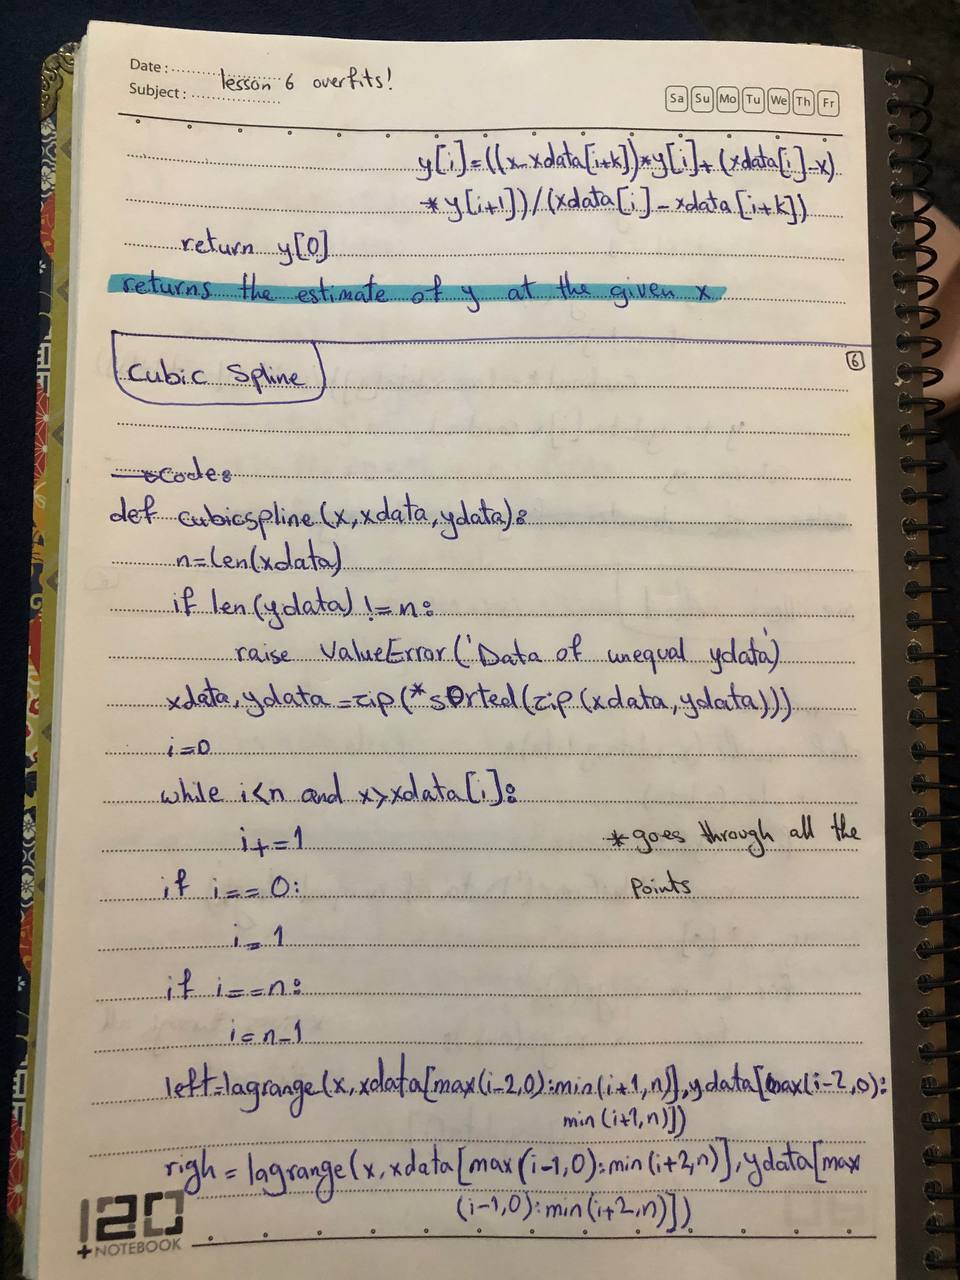 Date : lesson 6 overfits!
Subject :
Sa Su Mo Tu We Th Fr
y[i]=((x-xdata[i+k])*y[i]+(xdata[i]-x)
*y[i+1])/(xdata[i]-xdata[i+k])
return y[0]
returns the estimate of y at the given x
6
Cubic Spline
code:
def cubicspline(x,xdata,ydata):
n=len(xdata)
if len(ydata) != n:
raise ValueError('Data of unequal ydata')
xdata,ydata=zip(*sorted(zip(xdata,ydata)))
i=0
while i<n and x>xdata[i]:
i+=1
*goes through all the
if i==0:
points
i=1
if i==n:
i=n-1
left=lagrange(x,xdata[max(i-2,0):min(i+1,n)],ydata[max(i-2,0):
min(i+1,n)])
righ=lagrange(x,xdata[max(i-1,0):min(i+2,n)],ydata[max
(i-1,0):min(i+2,n)])
120
+NOTEBOOK